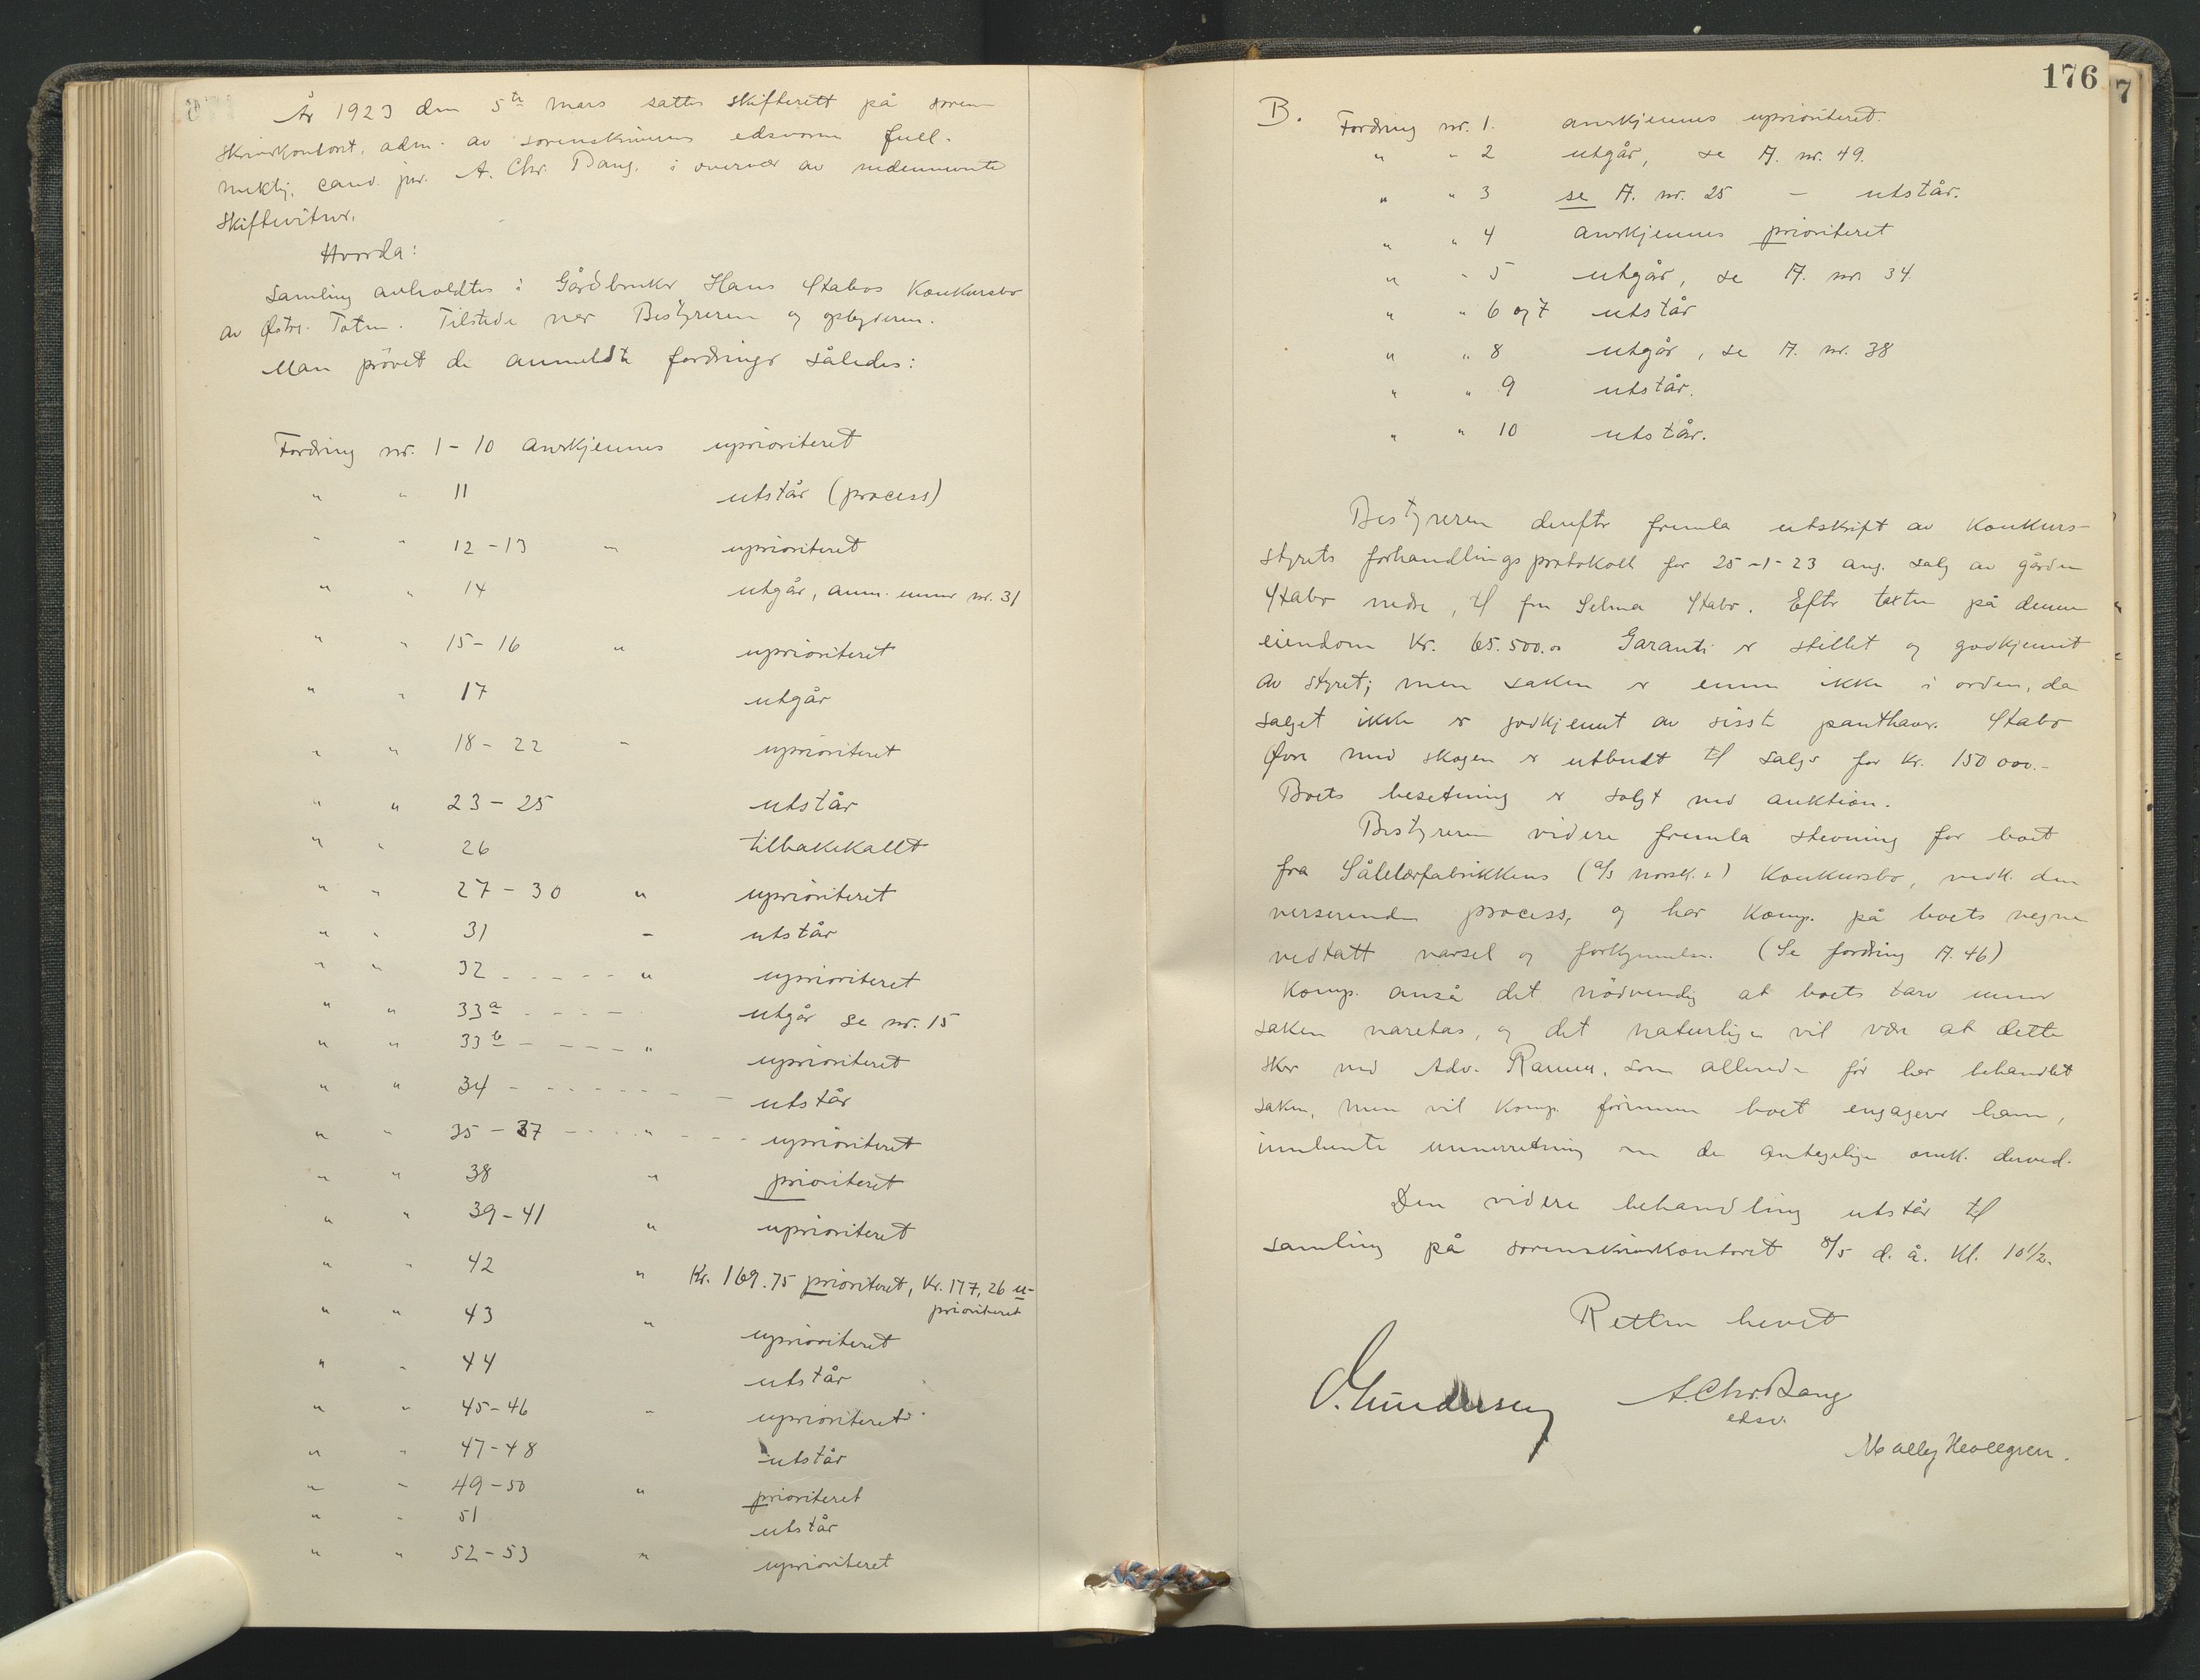 År 1923 den 5te mars sattes skifterett på soren-
skriverkontoret, adm. av sorenskriverens edsvorne full-
mektig, cand. jur. A. Chr. Bang, i overvær av nedennevnte
skiftevitner.
Hvorda:
Samling avholdtes i Gårdbruker Hans Stabos Konkursbo
av Østre Toten. Tilstede var Bestyreren og opbyderen.
Man prövet de anmeldte fordringer således:
Fordring nr. 1 - 10 anerkjennes uprioriteret
" " 11 utstår (process)
" " 12 - 13 " uprioriteret
" " 14 utgår, anm. under nr. 31
" " 15 - 16 " uprioriteret
" " 17 utgår
" " 18 - 22 " uprioriteret
" " 23 - 25 utstår
" " 26 tilbakekallt
" " 27 - 30 " uprioriteret
" " 31 - utstår
" " 32 - - - - - " uprioriteret
" " 33a - - - - utgår se nr. 15
" " 33b - - - - " uprioriteret
" " 34 - - - - - - - utstår
" " 35 - 37 - - - " - - - uprioriteret
" " 38 " prioriteret
" " 39 - 41 " uprioriteret
" " 42 " Kr. 169.75 prioriteret, Kr. 177,26 u-
prioriteret
" " 43 " uprioriteret
" " 44 utstår
" " 45 - 46 " uprioriteret
" " 47 - 48 utstår
" " 49 - 50 " prioriteret
" " 51 utstår
" " 52 - 53 " uprioriteret
176
7
B. Fordring nr. 1. anerkjennes uprioriteret.
" " 2 utgår, se A. nr. 49.
" " 3 se A. nr. 25 - utstår.
" " 4 anerkjennes prioriteret
" " 5 utgår, se A. nr. 34
" " 6 og 7 utstår
" " 8 utgår, se A. nr. 38
" " 9 utstår.
" " 10 utstår.
Bestyreren derefter fremla utskrift av Konkurs-
styrets forhandlingsprotokoll for 25-1-23 ang. salg av gården
Stabo nedre, til fru Selma Stabo. Efter taxten på denne
eiendom Kr. 65.500.00 Garanti er stillet og godkjennt
av styret; men saken er ennu ikke i orden, da
salget ikke er godkjennt av sisste panthaver. Stabo
Øvre med skogen er utbudt til salgs for Kr. 150 000.-
Boets besetning er solgt ved auktion.
Bestyreren videre fremla stevning for boet
fra Sålelærfabrikkens (a/s norsk.) Konkursbo, vedk. den
verserende process, og har Komp. på boets vegne
vedtatt varsel og forkynnelse. (Se fordring A. 46)
Komp. anså det nödvendig at boets tarv under
saken varetas, og det naturlige vil være at dette
sker ved Adv. Ramm, som allerede för har behandlet
saken, men vil Komp. förinnen boet engagerer ham,
innhente underretning om de antagelige omk. derved.
Den videre behandling utstår til
samling på sorenskriverkontoret 8/5 d. å. Kl. 10 1/2.
Retten hevet
O. Gundersen
A. Chr. Bang
edsv.